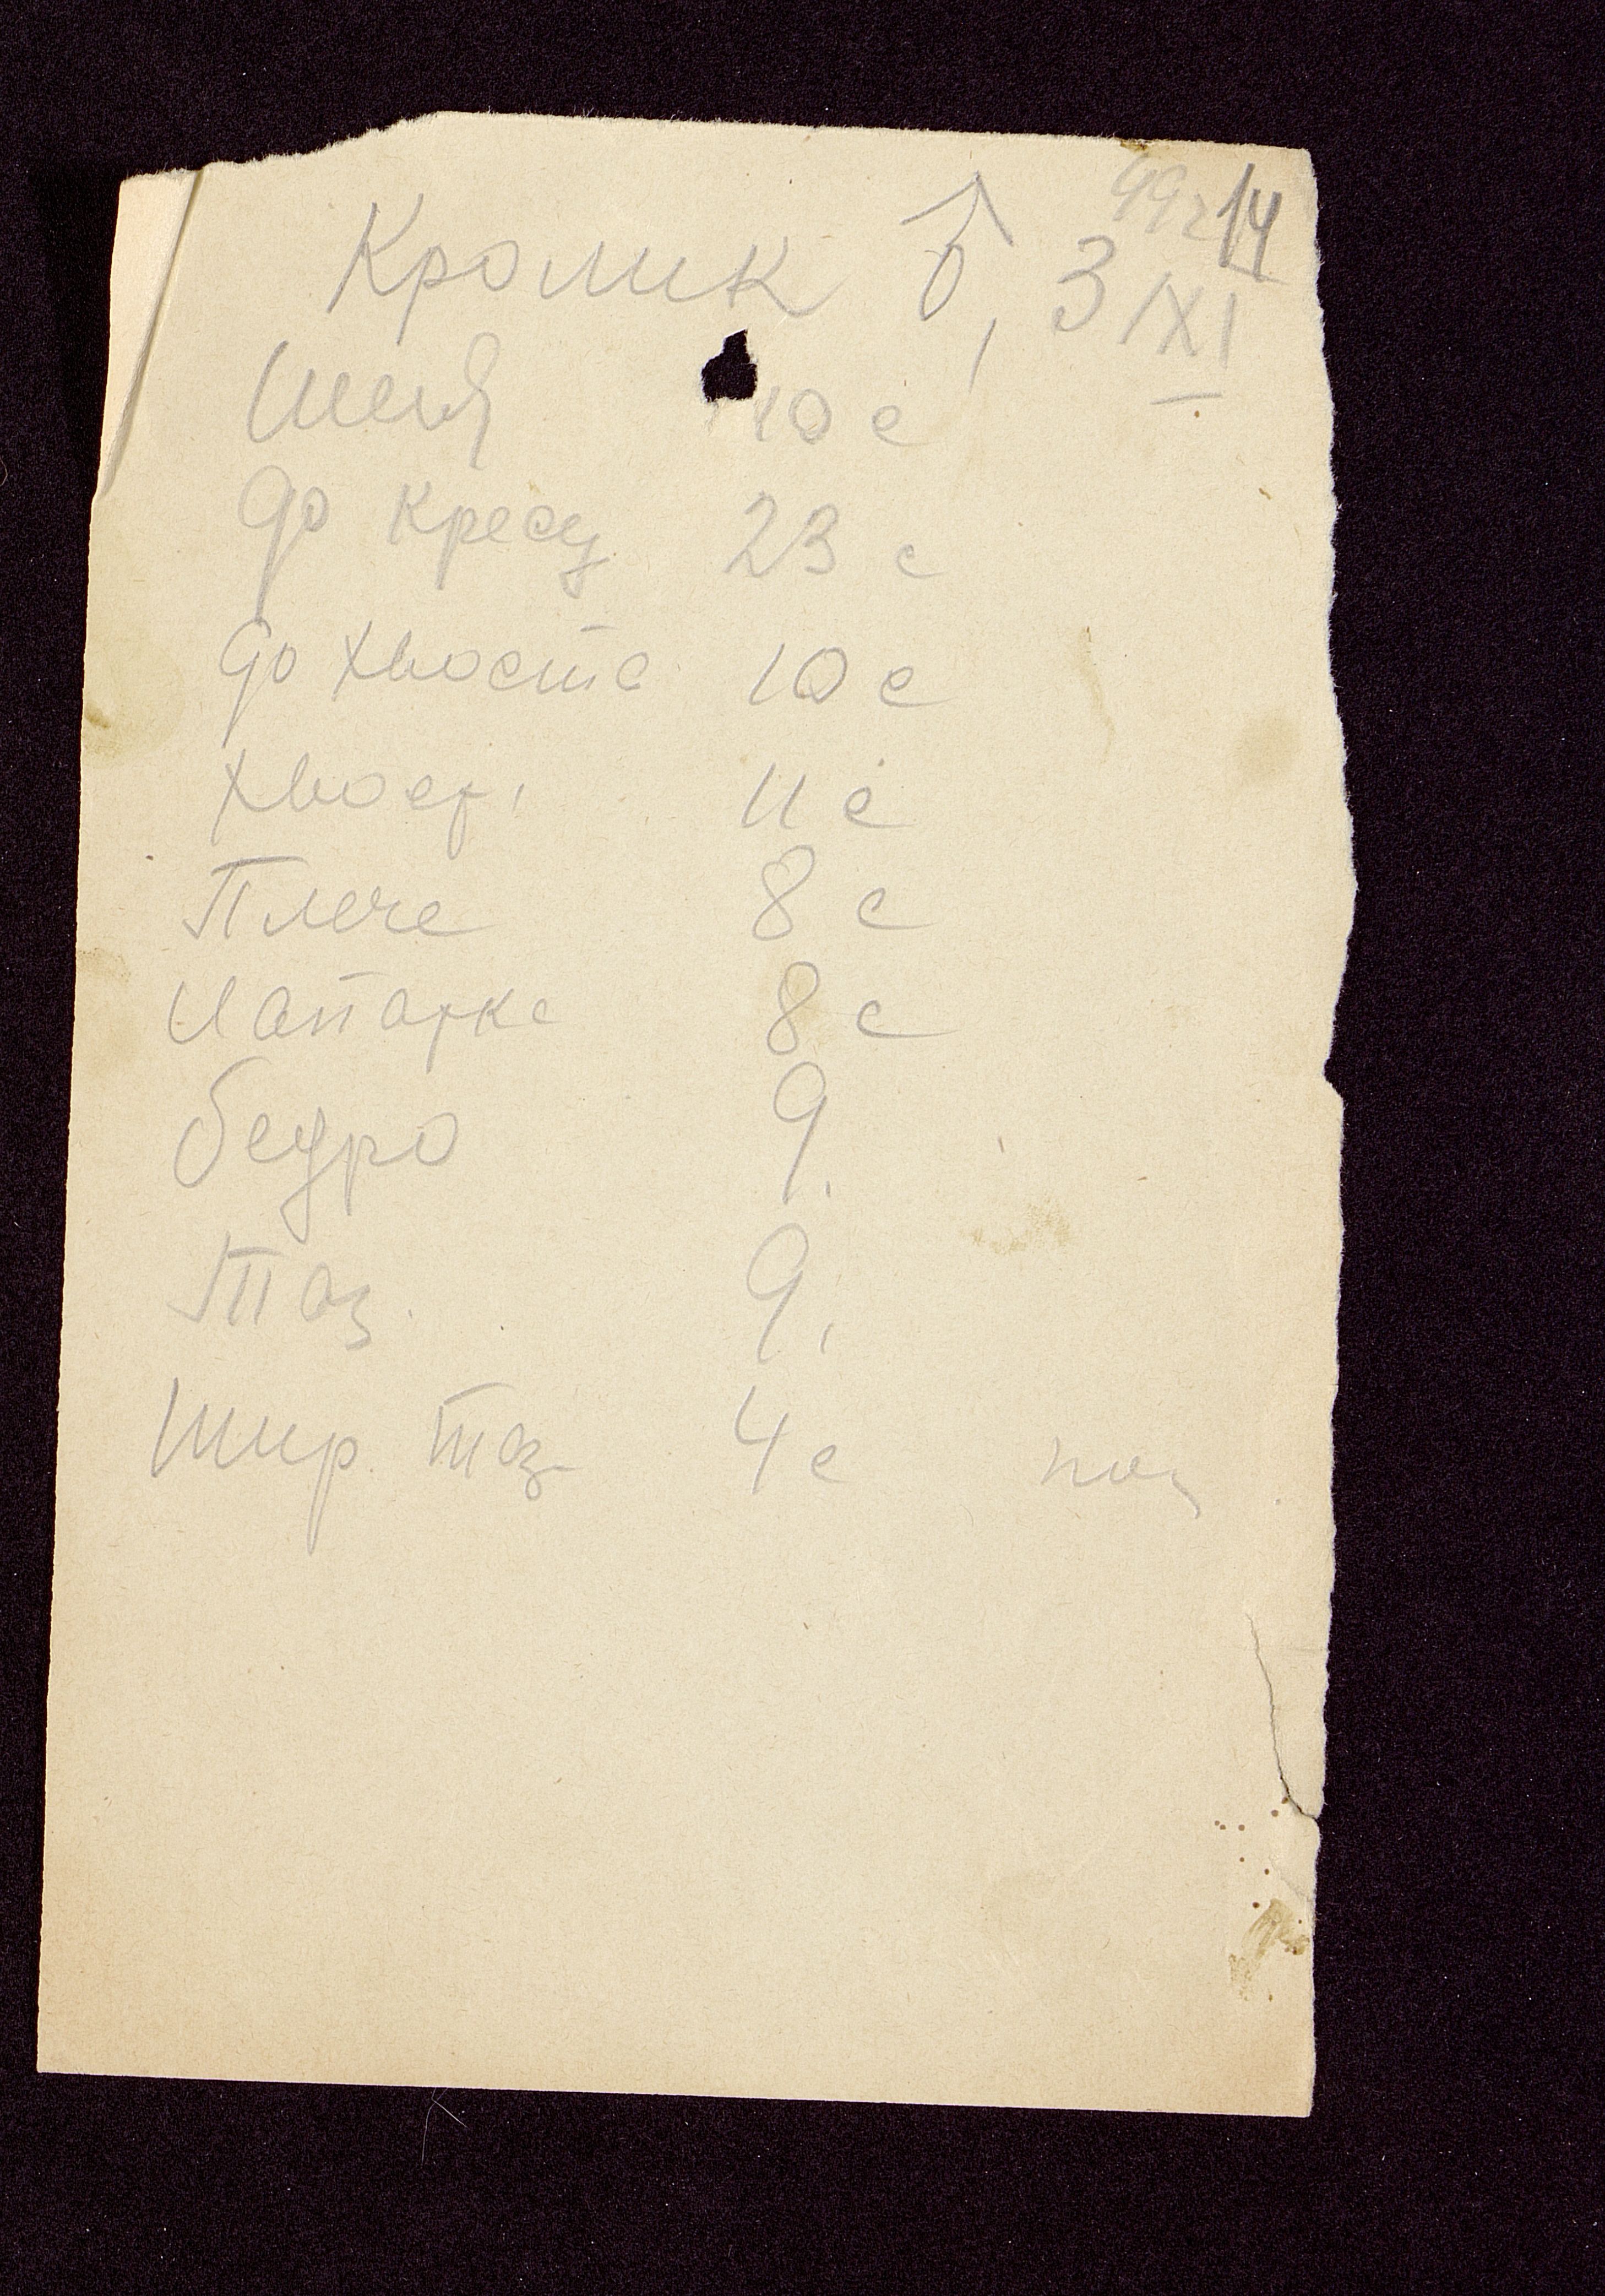 49г 14
Кролик ♂, 3/XI
Шея 10 с
до кресц 23 с
до хвоста 10 с
хвост 11 с
Плече 8 с
Лапатка 8 с
бедро 9.
Таз. 9,
Шир. таз 4 с